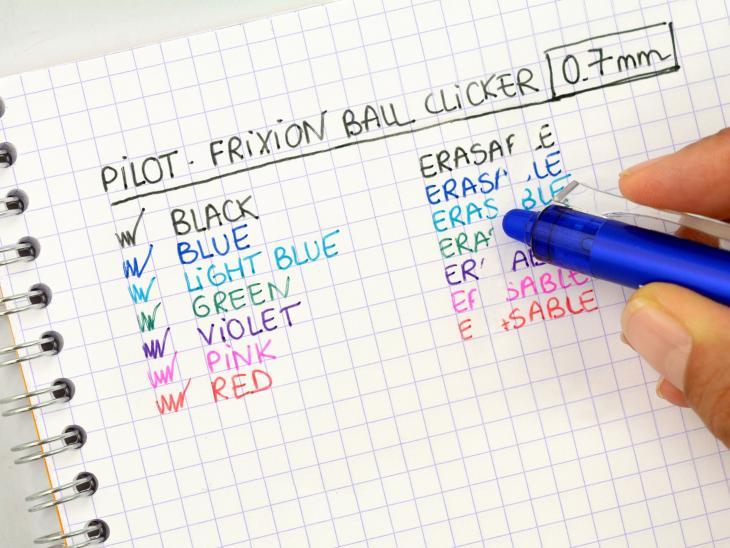 PILOT - FRIXION BALL CLICKER 0.7mm
BLACK
BLUE
LIGHT BLUE
GREEN
VIOLET
PINK
RED
ERASA LE
ERASA LE
ERAS BLE
ERA
ER AB
ER SABLE
E ASABLE